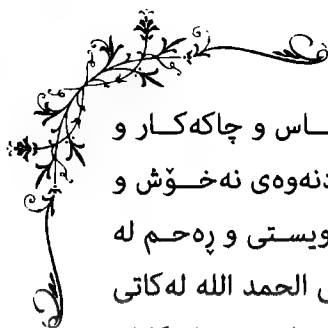 ـاس و چاکەکـار و
دنەوەی نەخـۆش و
ویسـتی و ڕەحـم لە
الحمد الله لەکاتی